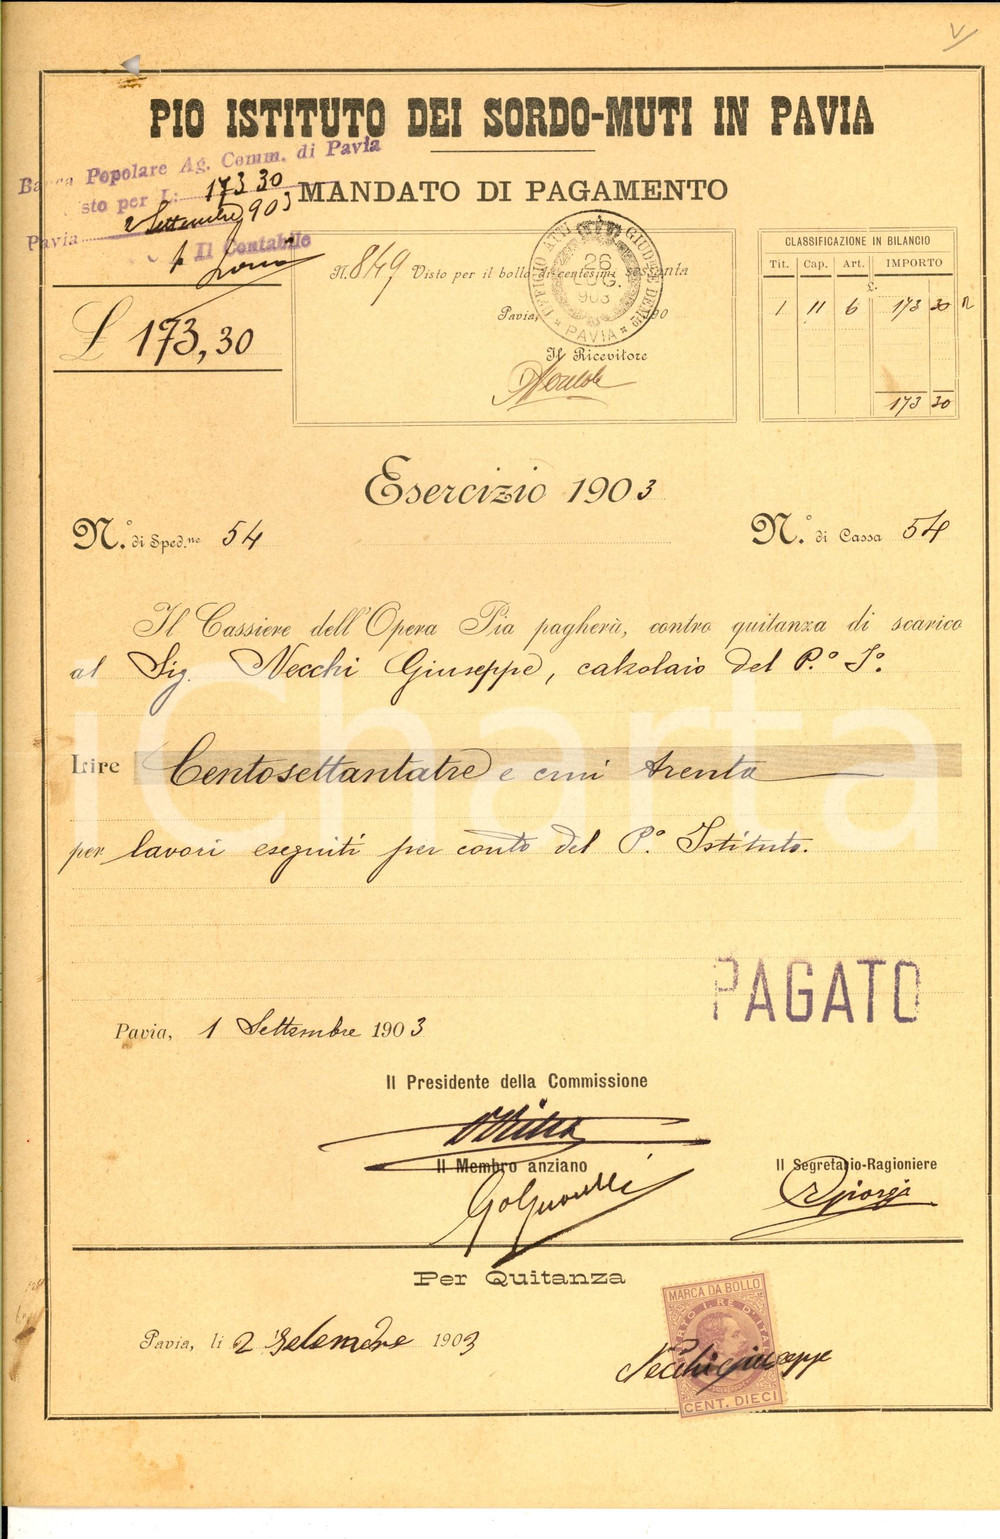 PIO ISTITUTO DEI SORDO-MUTI IN PAVIA
Banca Popolare Ag. Comm. di Pavia
Visto per L: 173 30
Pavia 2 Settembre 903
Il Contabile
MANDATO DI PAGAMENTO
£ 173,30
N. 849 Visto per il bollo di centesimi sessanta
Pavia, 190
Il Ricevitore
UFFICIO ATTI GIUD DEM
26
LUG.
903
* PAVIA *
CLASSIFICAZIONE IN BILANCIO
Tit. Cap. Art. IMPORTO
£.
1 11 6 173 30
173 30
Esercizio 1903
N.° di Sped.ne 54
N.° di Cassa 54
Il Cassiere dell'Opera Pia pagherà, contro quitanza di scarico
al Sig. Necchi Giuseppe, calzolaio del P.° I°.
Lire Centosettantatre e cmi trenta
per lavori eseguiti per conto del P.° Istituto.
iCharta
PAGATO
Pavia, 1 Settembre 1903
Il Presidente della Commissione
Il Membro anziano
Il Segretario-Ragioniere
Per Quitanza
Pavia, li 2 Setembre 1903
Necchi Giuseppe
MARCA DA BOLLO
CENT. DIECI